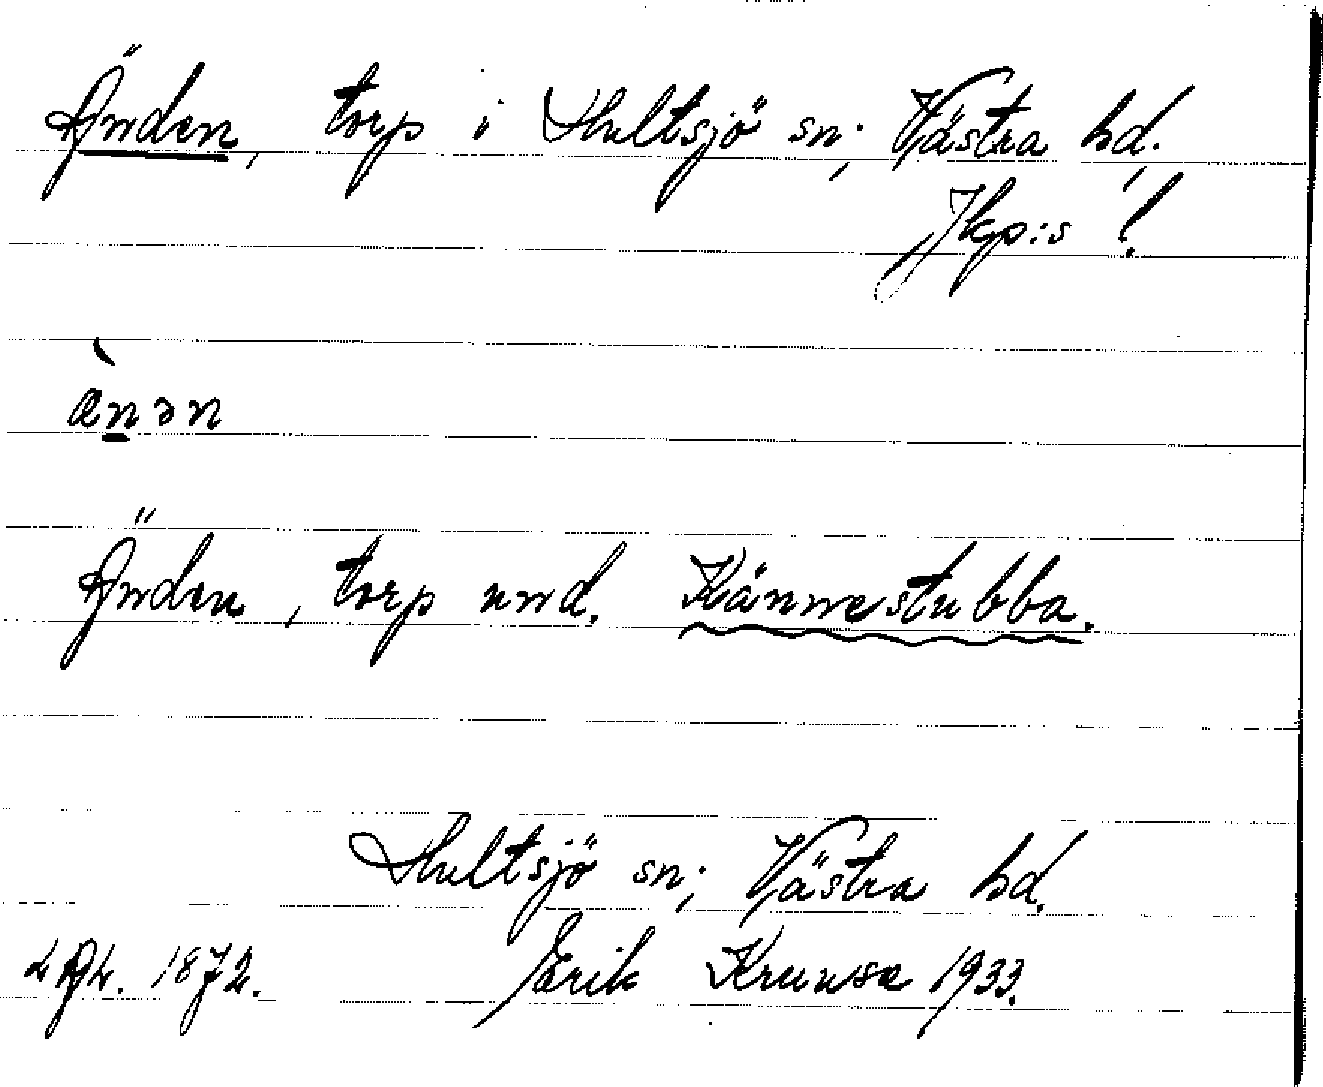 Änden, torp i Hultsjö sn; Västra hd.
Jkp:s l.
ànən
Änden, torp und. Kännestubba.
Hultsjö sn; Västra hd.
1872. Erik Krunsa 1933.